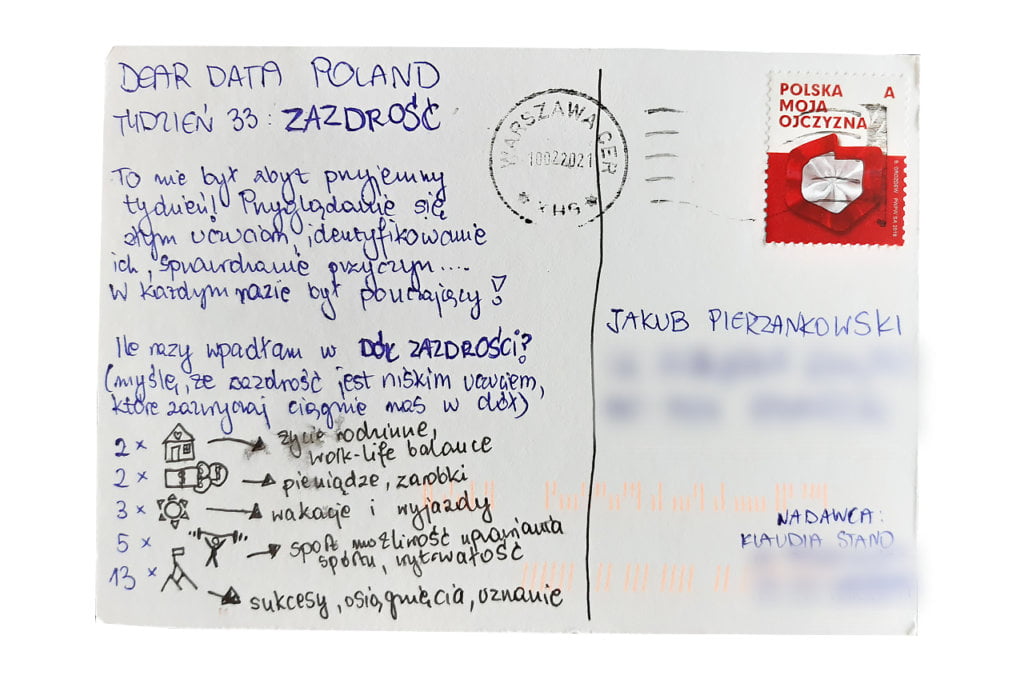 DEAR DATA POLAND
TYDZIEŃ 33: ZAZDROŚĆ
To nie był zbyt przyjemny
tydzień! Przyglądanie się
złym uczuciom, identyfikowanie
ich, sprawdzanie przyczyn....
W każdym razie był pouczający!
Ile razy wpadłam w DÓŁ ZAZDROŚCI?
(myślę, że zazdrość jest niskim uczuciem,
które zazwyczaj ciągnie nas w dół)
2 × życie rodzinne,
work-life balance
2 × pieniądze, zarobki
3 × wakacje i wyjazdy
5 × sport możliwość uprawiania
sportu, wytrwałość
13 × sukcesy, osiągnięcia, uznanie
WARSZAWA CER
10022021
POLSKA A
MOJA
OJCZYZNA
JAKUB PIERZANKOWSKI
NADAWCA:
KLAUDIA STANO